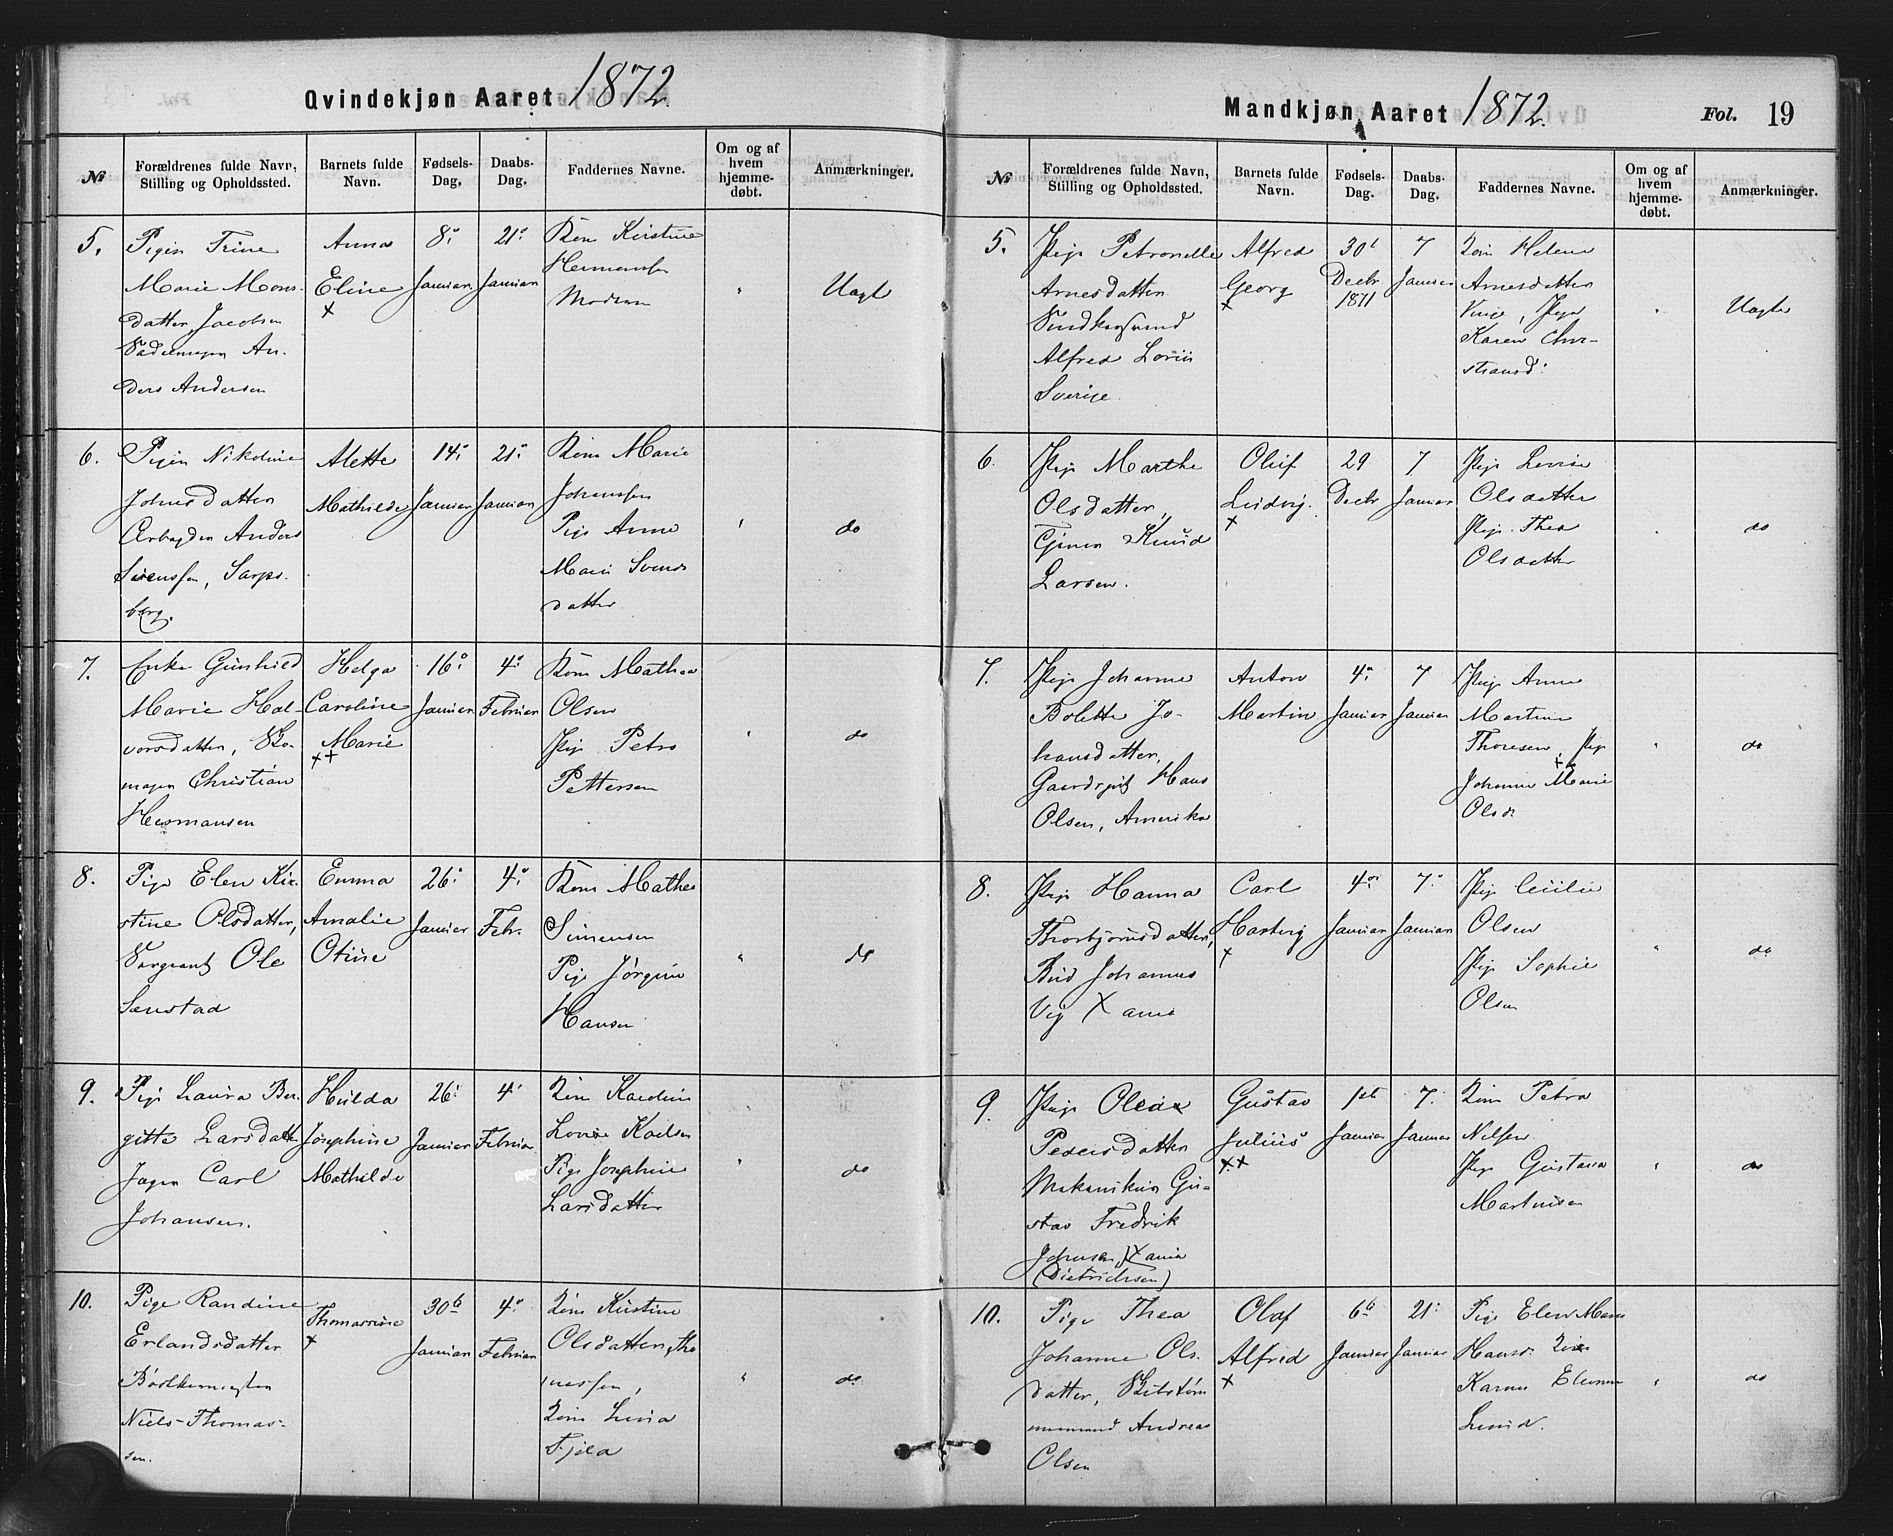 Qvindekjøn Aaret 1872
№
Forældrenes fulde Navn, Stilling og Opholdssted.
Barnets fulde Navn.
Fødsels-Dag,
Daabs-Dag.
Faddernes Navne.
Om og af hvem hjemme-døbt.
Anmærkninger.
5.
Pigen Trine
Marie Mons-
datter, Jacobsen
An-
ders Andersen
Anna
Eline
8de
Januar
21de
Januar
Kone Kirstine
Hermansen
Moderen
Uægte
6.
Pigen Nikoline
Johnsdatter
Arbeyder Anders
Sørenssen, Sarps-
borg.
Alette
Mathilde
14de
Januar
21de
Januar
Kone Marie
Johanssen
Pige Anne
Marie Svends
datter
do
7.
Enke Gunhild
Marie Hal-
vorsdatter, Sko-
mager Christian
Hermansen
Helga
Caroline
Marie
16de
Januar
4de
Februar
Kone Mathea
Olsen
Pige Petra
Pettersen
do
8.
Pige Elen Kir-
stine Olsdatter,
Sergeant Ole
Senstad
Emma
Amalie
Otine
26de
Januar
4de
Febr.
Kone Mathea
Simensen
Pige Jørgine
Hansen
do
9.
Pige Laura Ber-
gitte Larsdatter
Carl
Johansen.
Hulda
Josephine
Mathilde
26de
Januar
4de
Februar
Kone Karoline
Lovise Karlsen
Pige Josephine
Larsdatter
do
10.
Pige Randine
Erlandsdatter
Bødkersvend
Niels Thomas-
sen.
Thomassine
30te
Januar
4de
Februar
Kone Kirstine
Olsdatter, Tho
massen,
Kone Lovisa
Fjeld
do
Mandkjøn Aaret 1872.
Fol. 19
№
Forældrenes fulde Navn, Stilling og Opholdssted.
Barnets fulde Navn.
Fødsels-Dag.
Daabs-Dag.
Faddernes Navne.
Om og af hvem hjemme-døbt.
Anmærkninger.
5.
Pige Petronelle
Arnesdatter
Alfred
Sverige
Alfred
Georg
30te
Decbr
1871
7
Januar
Kone Helene
Arnesdatter
Vinje, Pige
Karen Chri-
stiansd:
Uægte
6
Pige Marthe
Olsdatter,
Tjener Knud
Larsen.
Oluf
Ludvig.
29
Decbr
7
Januar
Pige Lovise
Olsdatter
Pige Thea
Olsdatter
do
7.
Pige Johanne
Bolette Jo-
hansdatter,
Gaardsgut Hans
Olsen, Amerika
Anton
Martin
4de
Januar
7
Januar
Pige Anne
Martine
Thoresen, Pige
Johanne Marie
Olsd:
do
8.
Pige Hanna
Thorbjørnsdatter,
Bud Johannes
Vig Xania
Carl
Hartvig
4de
Januar
7de
Januar
Pige Cecilie
Olsen
Pige Sophie
Olsen
do
9.
Pige Olea
Pedersdatter
Mekanikus Gu-
stav Fredrik
Johnsen, Xania
(Dietrichsen)
Gustav
Julius
1ste
Januar
7.
Januar
Kone Petra
Nilsen
Pige Gustava
Martinsen
do
10.
Pige Thea
Johanne Ols-
datter,
Andreas
Olsen
Olaf
Alfred
6te
Januar
21de
Januar
Pige Elen Marie
Hansd. Kone
Karen Eleonore
Lund.
do